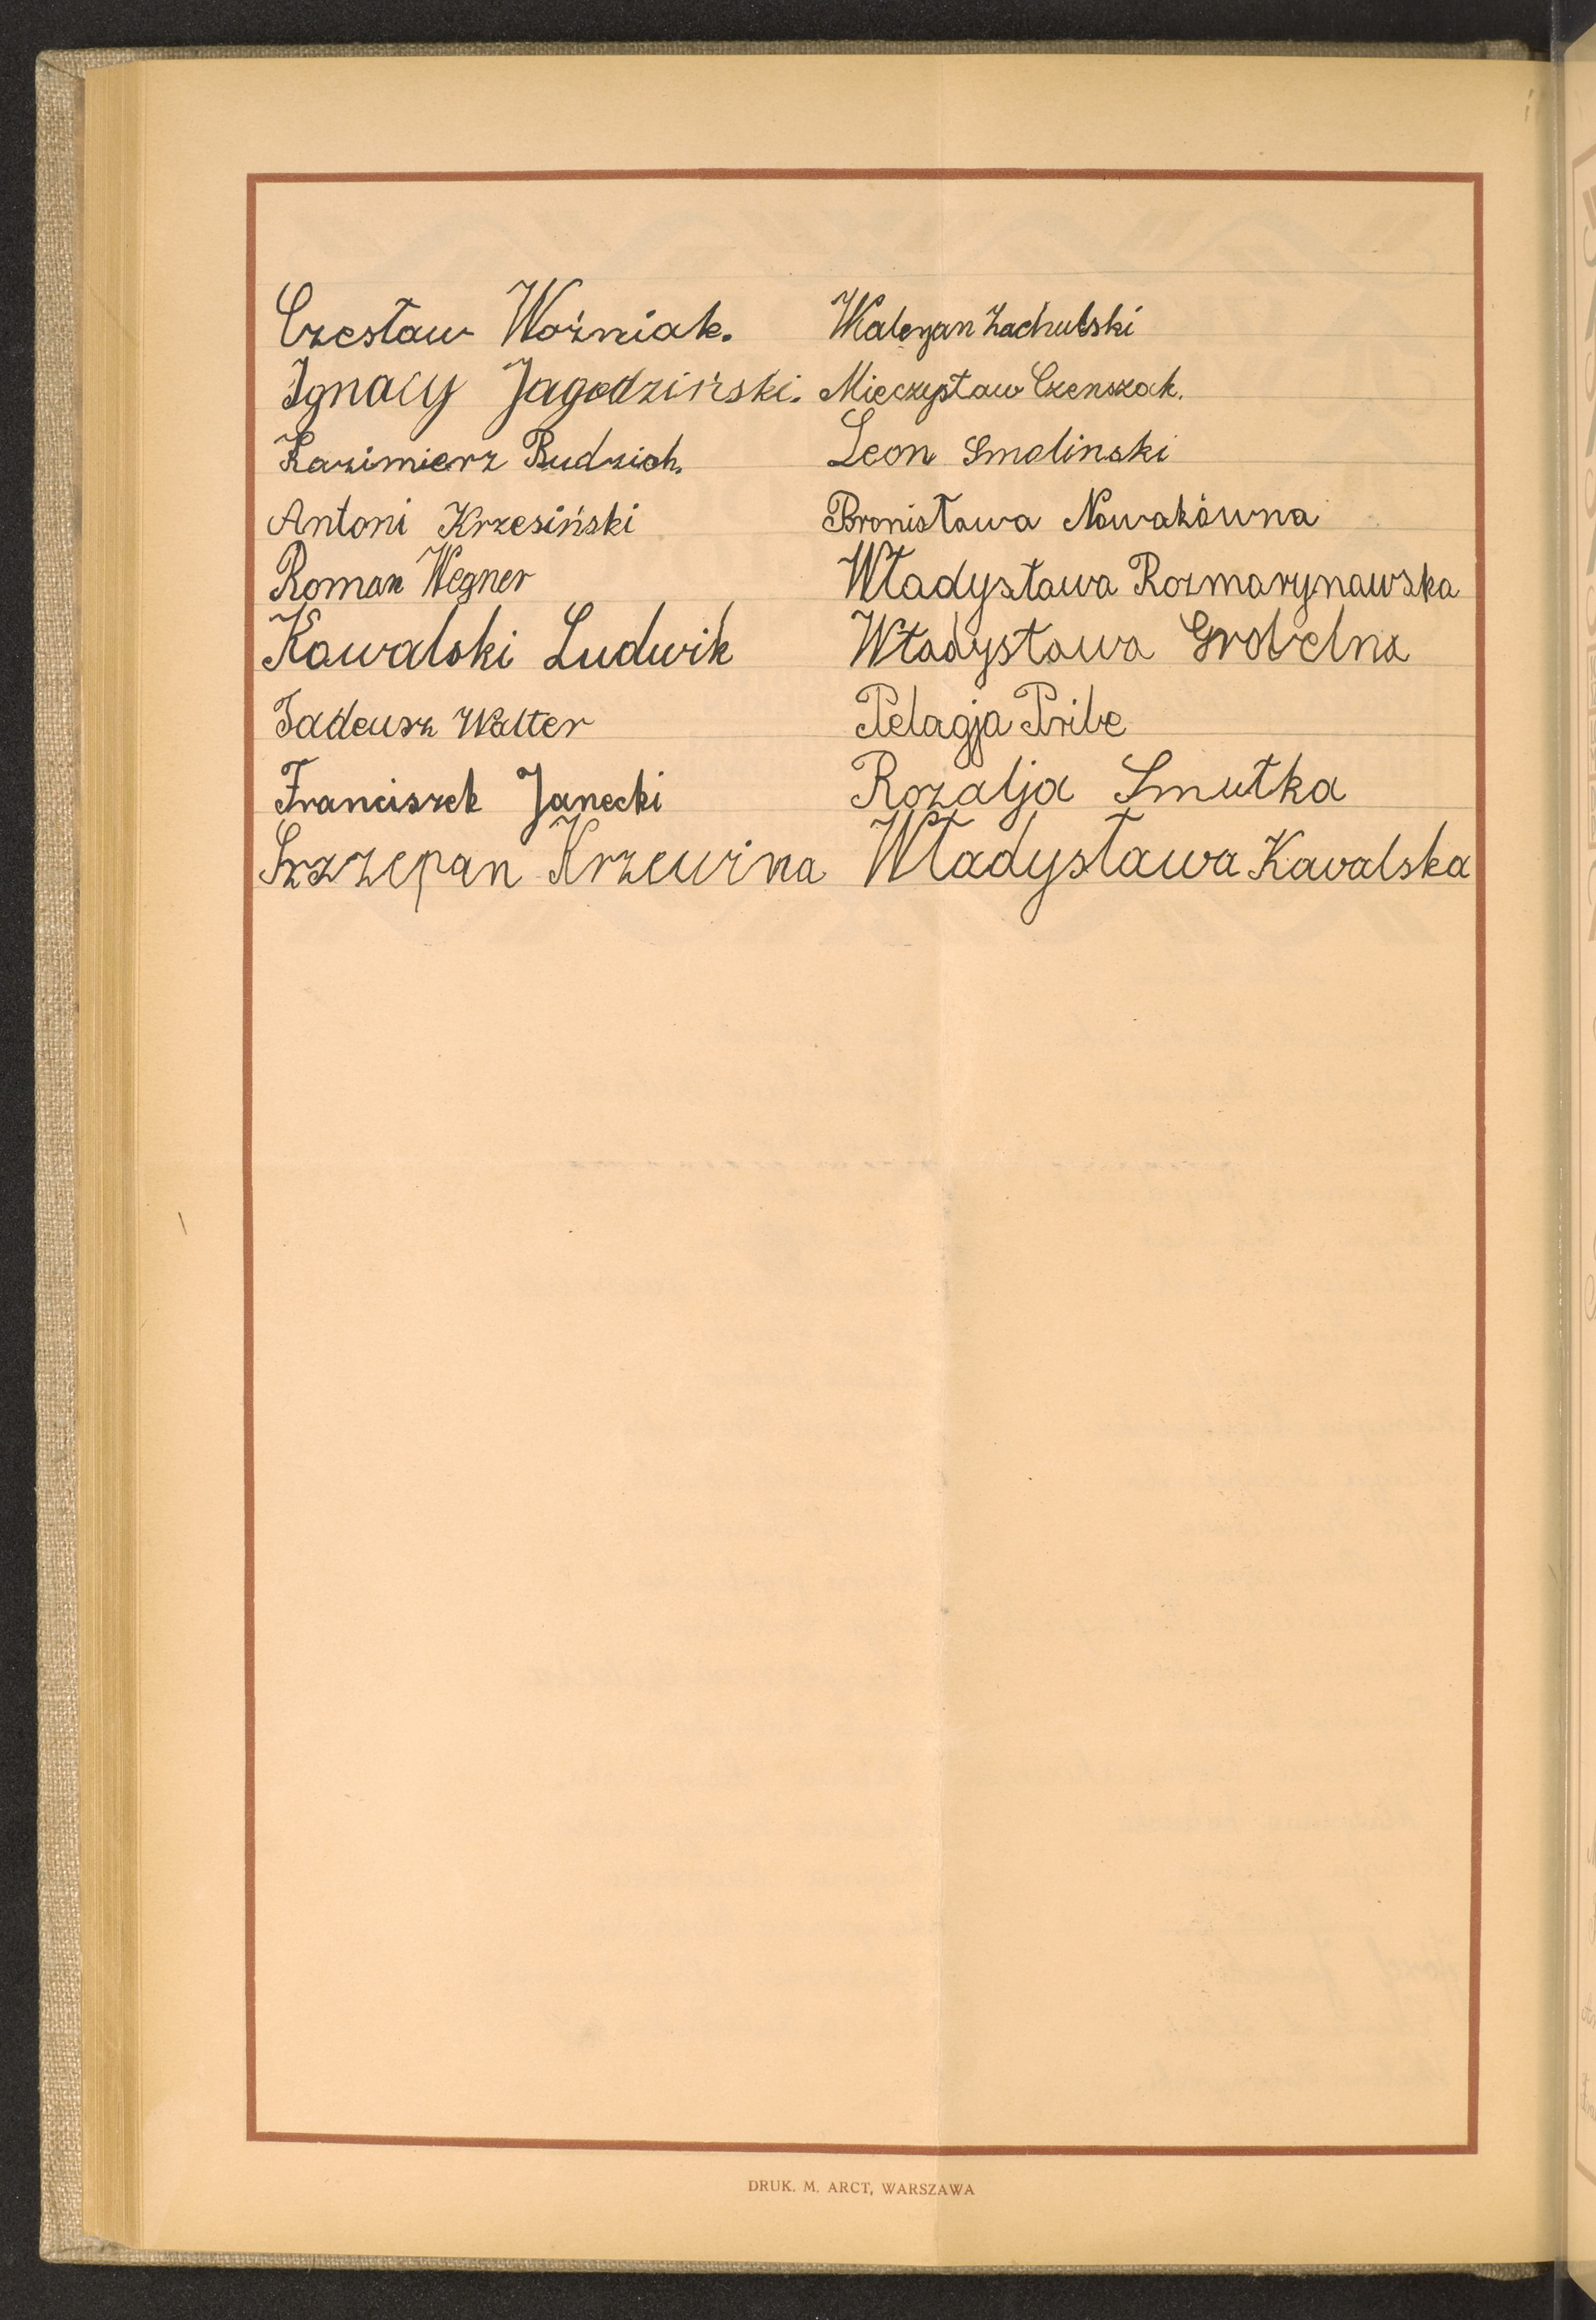 Czesław Woźniak.
Ignacy Jagodziński.
Kazimierz Budzich.
Antoni Krzesiński
Roman Wegner
Kowalski Ludwik
Tadeusz Walter
Franciszek Janecki
Szczepan Krzewina
Waleryan Zachulski
Mieczysław Czenszak.
Leon Smolinski
Bronisława Nowakówna
Władysława Rozmarynawska
Władysława Grobelna
Pelagja Pribe
Rozalja Smutka
Władysława Kawalska
DRUK. M. ARCT, WARSZAWA